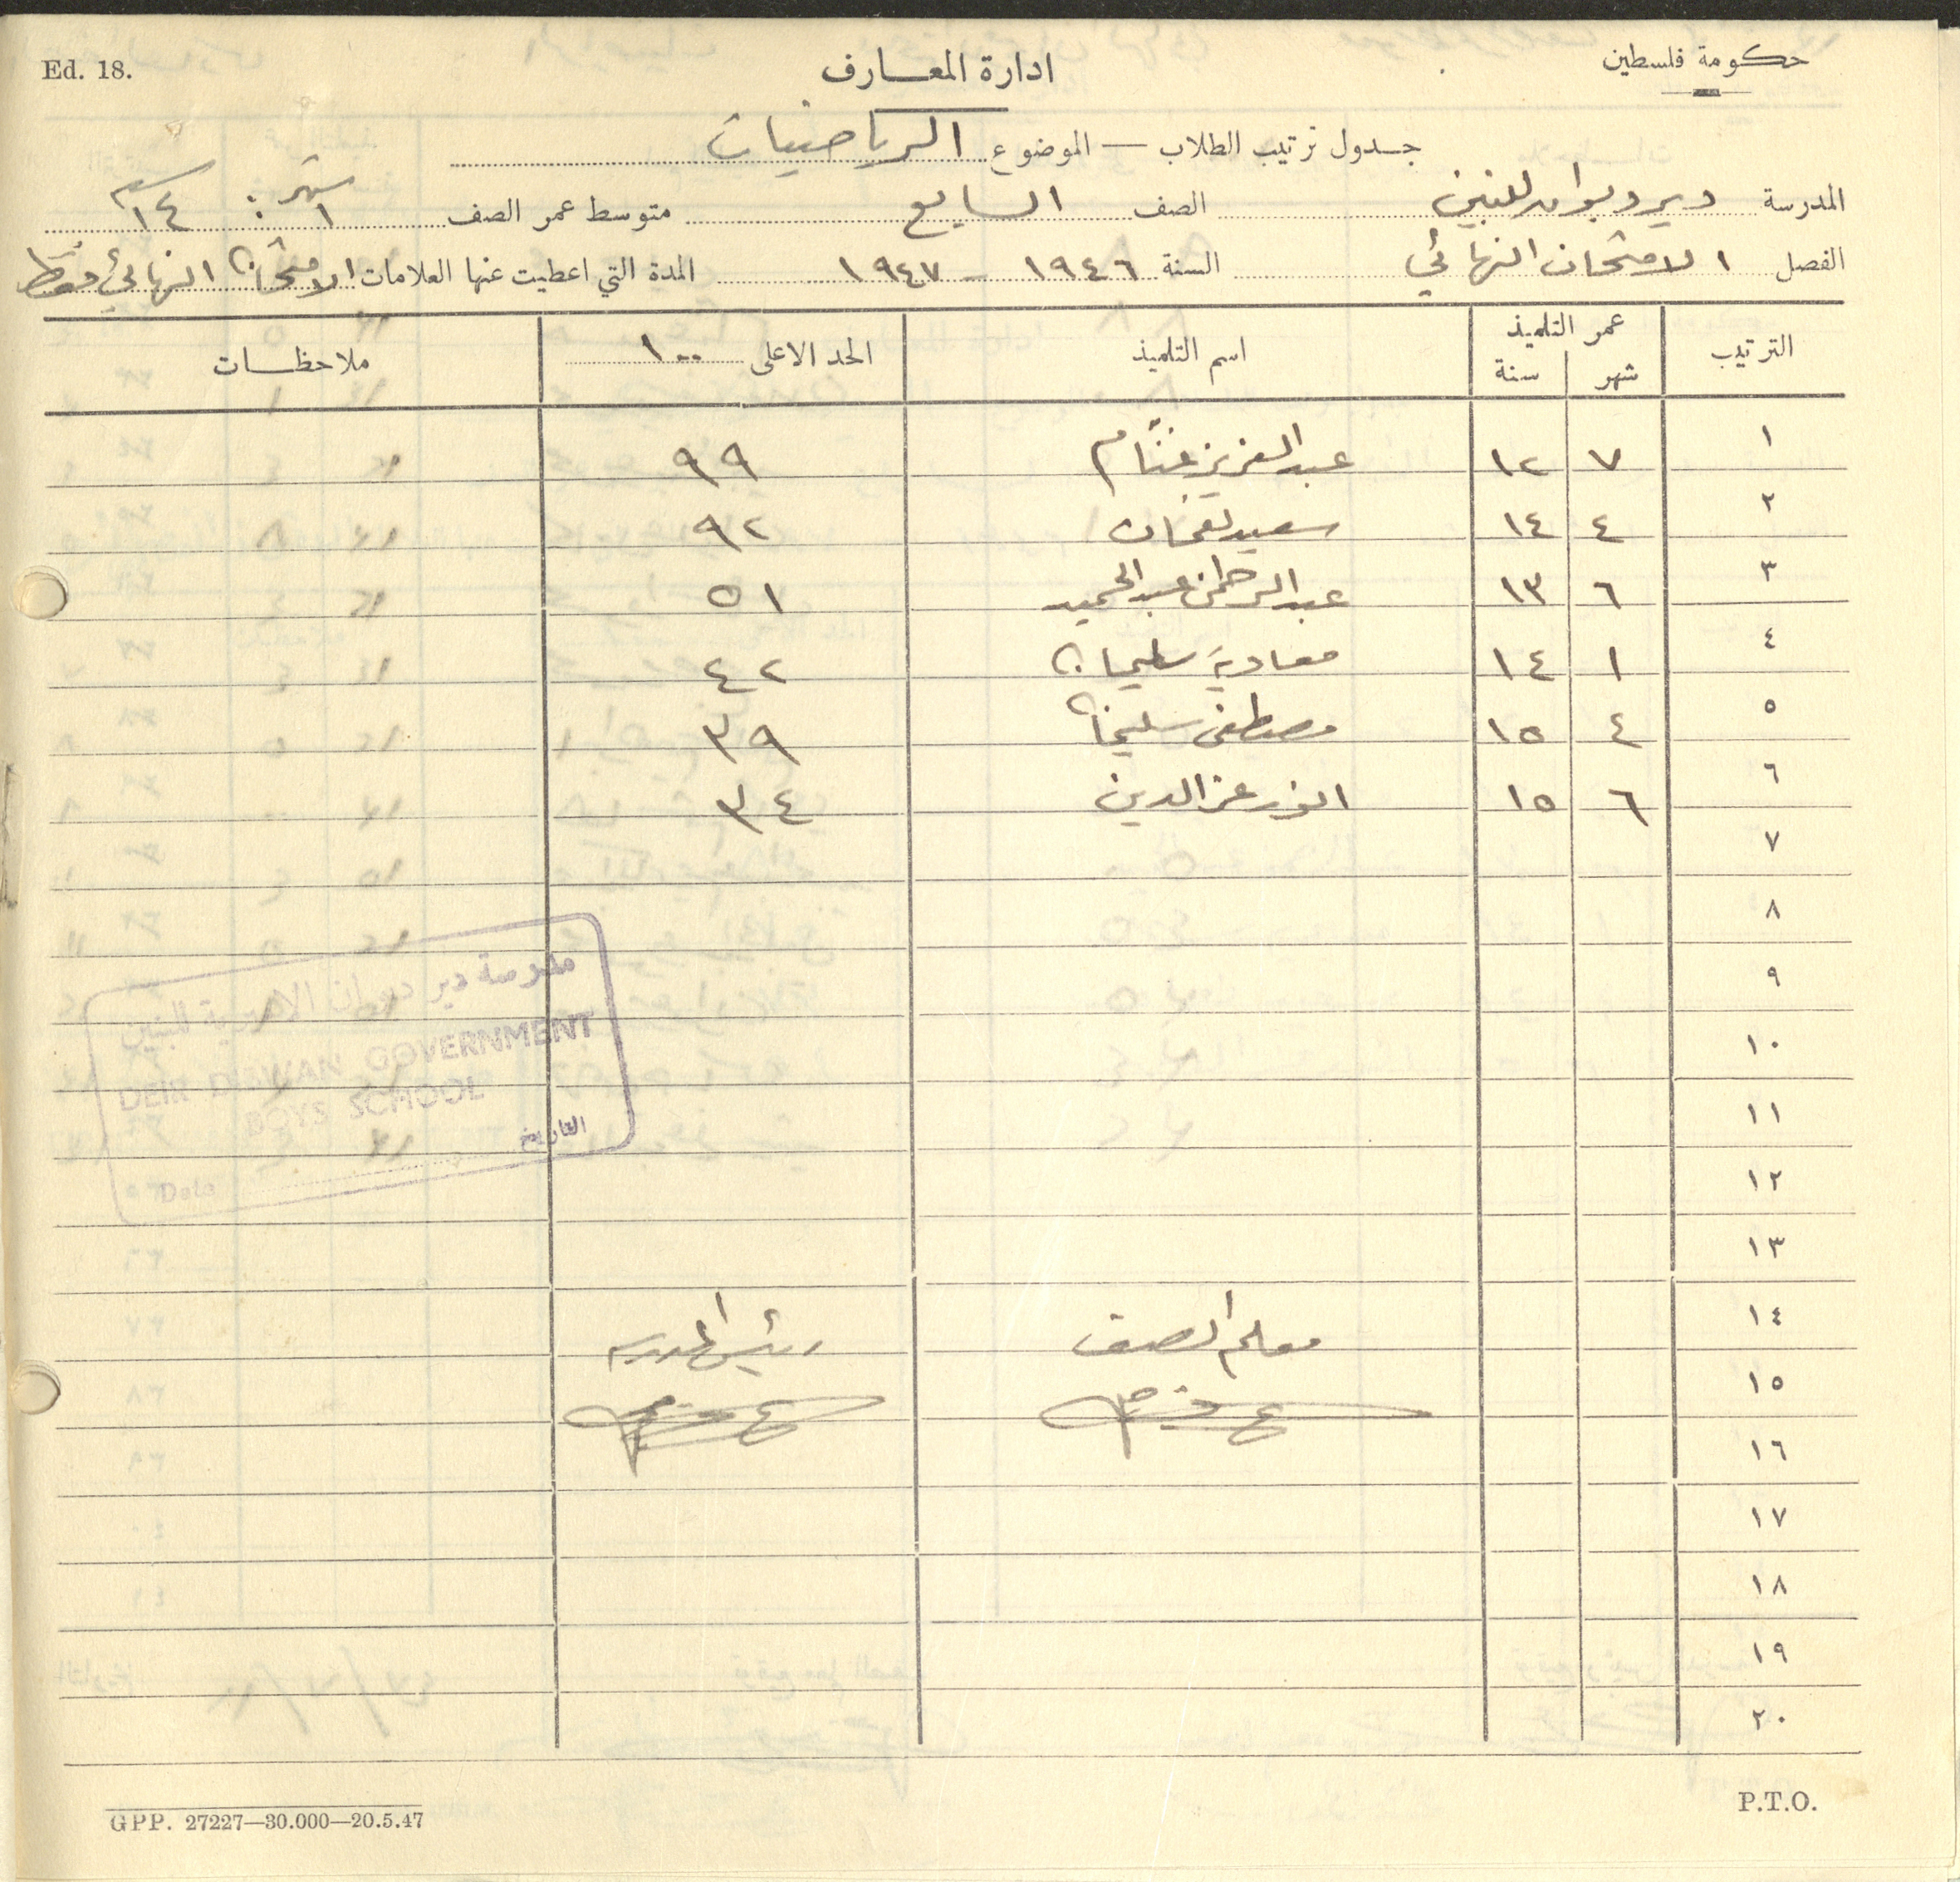 حكومة فلسطين
ادارة المعارف
Ed. 18.
جدول ترتيب الطلاب — الموضوع الرياضيات
المدرسة ديرديوان للبنين الصف السابع متوسط عمر الصف ١ شهر : ١٤ سنة
الفصل الامتحان النهائي السنة ١٩٤٦ - ١٩٤٧ المدة التي اعطيت عنها العلامات الامتحان النهائي فقط
الترتيب عمر التلميذ اسم التلميذ الحد الاعلى ١٠٠ ملاحظات
شهر سنة
١ ٧ ١٢ عبد العزيز غنّام ٩٩
٢ ٤ ١٤ سعيد نعمان ٩٢
٣ ٦ ١٣ عبد الرحمن عبد الحميد ٥١
٤ ١ ١٤ معاوية سليمان ٤٢
٥ ٤ ١٥ مصطفى سليمان ٣٩
٦ ٦ ١٥ انور عز الدين ٣٤
٧
٨
٩
١٠
١١
١٢
١٣
١٤ معلم الصف رئيس المدرسة
١٥
١٦
١٧
١٨
١٩
٢٠
مدرسة دير ديوان الاميرية للبنين
DEIR DIBWAN GOVERNMENT
BOYS SCHOOL
التاريخ
Date
GPP. 27227—30.000—20.5.47
P.T.O.